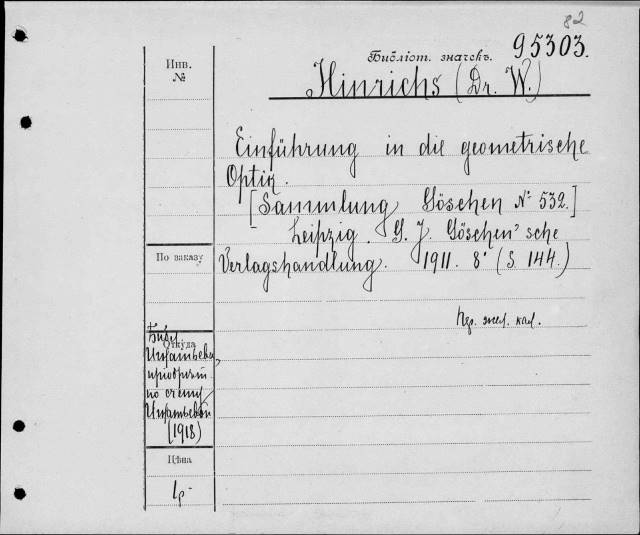 82
Библіот. значекъ. 95303.
Инв.
№
Hinrichs (Dr. W.)
Einführung in die geometrische
Optik.
[Sammlung Göschen № 532.]
Leipzig. G. J. Göschen'sche
Verlagshandlung. 1911. 8° (S. 144.)
По заказу
кад.
Откуда
Библ.
Игнатьева,
приобрит.
по счету
Игнатьевой
(1918)
Цѣна
1р-